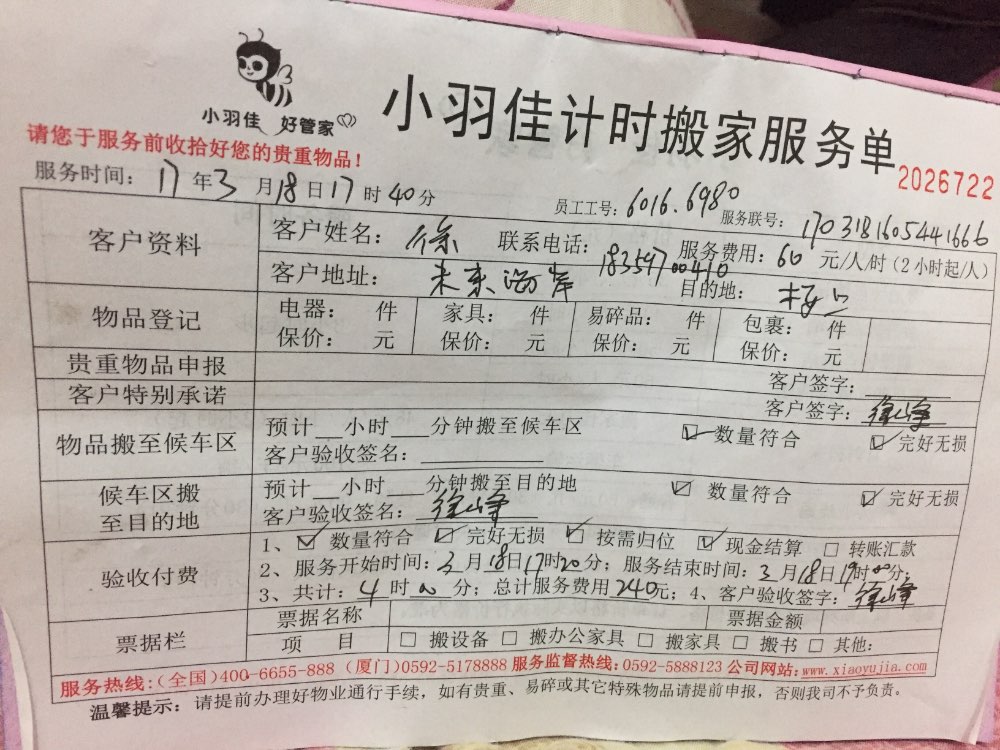 小羽佳 好管家
小羽佳计时搬家服务单
请您于服务前收拾好您的贵重物品！
2026722
服务时间： 17 年 3 月 18 日 17 时 40 分
员工工号：6016.6980 服务联号：1703181605441666
客户资料 客户姓名：徐 联系电话：18359700410 服务费用：60 元/人/时（2小时起/人）
客户地址：未来海岸 目的地：
物品登记 电器： 件 家具： 件 易碎品： 件 包裹： 件
保价： 元 保价： 元 保价： 元 保价： 元
贵重物品申报 客户签字：
客户特别承诺 客户签字：徐峰
物品搬至候车区 预计__小时___分钟搬至候车区 ☑ 数量符合 ☑ 完好无损
客户验收签名：
候车区搬至目的地 预计__小时___分钟搬至目的地 ☑ 数量符合 ☑ 完好无损
客户验收签名：徐峰
验收付费 1、☑ 数量符合 ☑ 完好无损 ☑ 按需归位 ☑ 现金结算 □ 转账汇款
2、服务开始时间：3 月 18 日 17 时 20 分；服务结束时间：3 月 18 日 19 时 00 分；
3、共计：4 时 00 分；总计服务费用 240 元；4、客户验收签字：徐峰
票据栏 票据名称 票据金额
项 目 □ 搬设备 □ 搬办公家具 □ 搬家具 □ 搬书 □ 其他：
服务热线：（全国）400-6655-888 （厦门）0592-5178888 服务监督热线：0592-5888123 公司网站：www.xiaoyujia.com
温馨提示：请提前办理好物业通行手续，如有贵重、易碎或其它特殊物品请提前申报，否则我司不予负责。